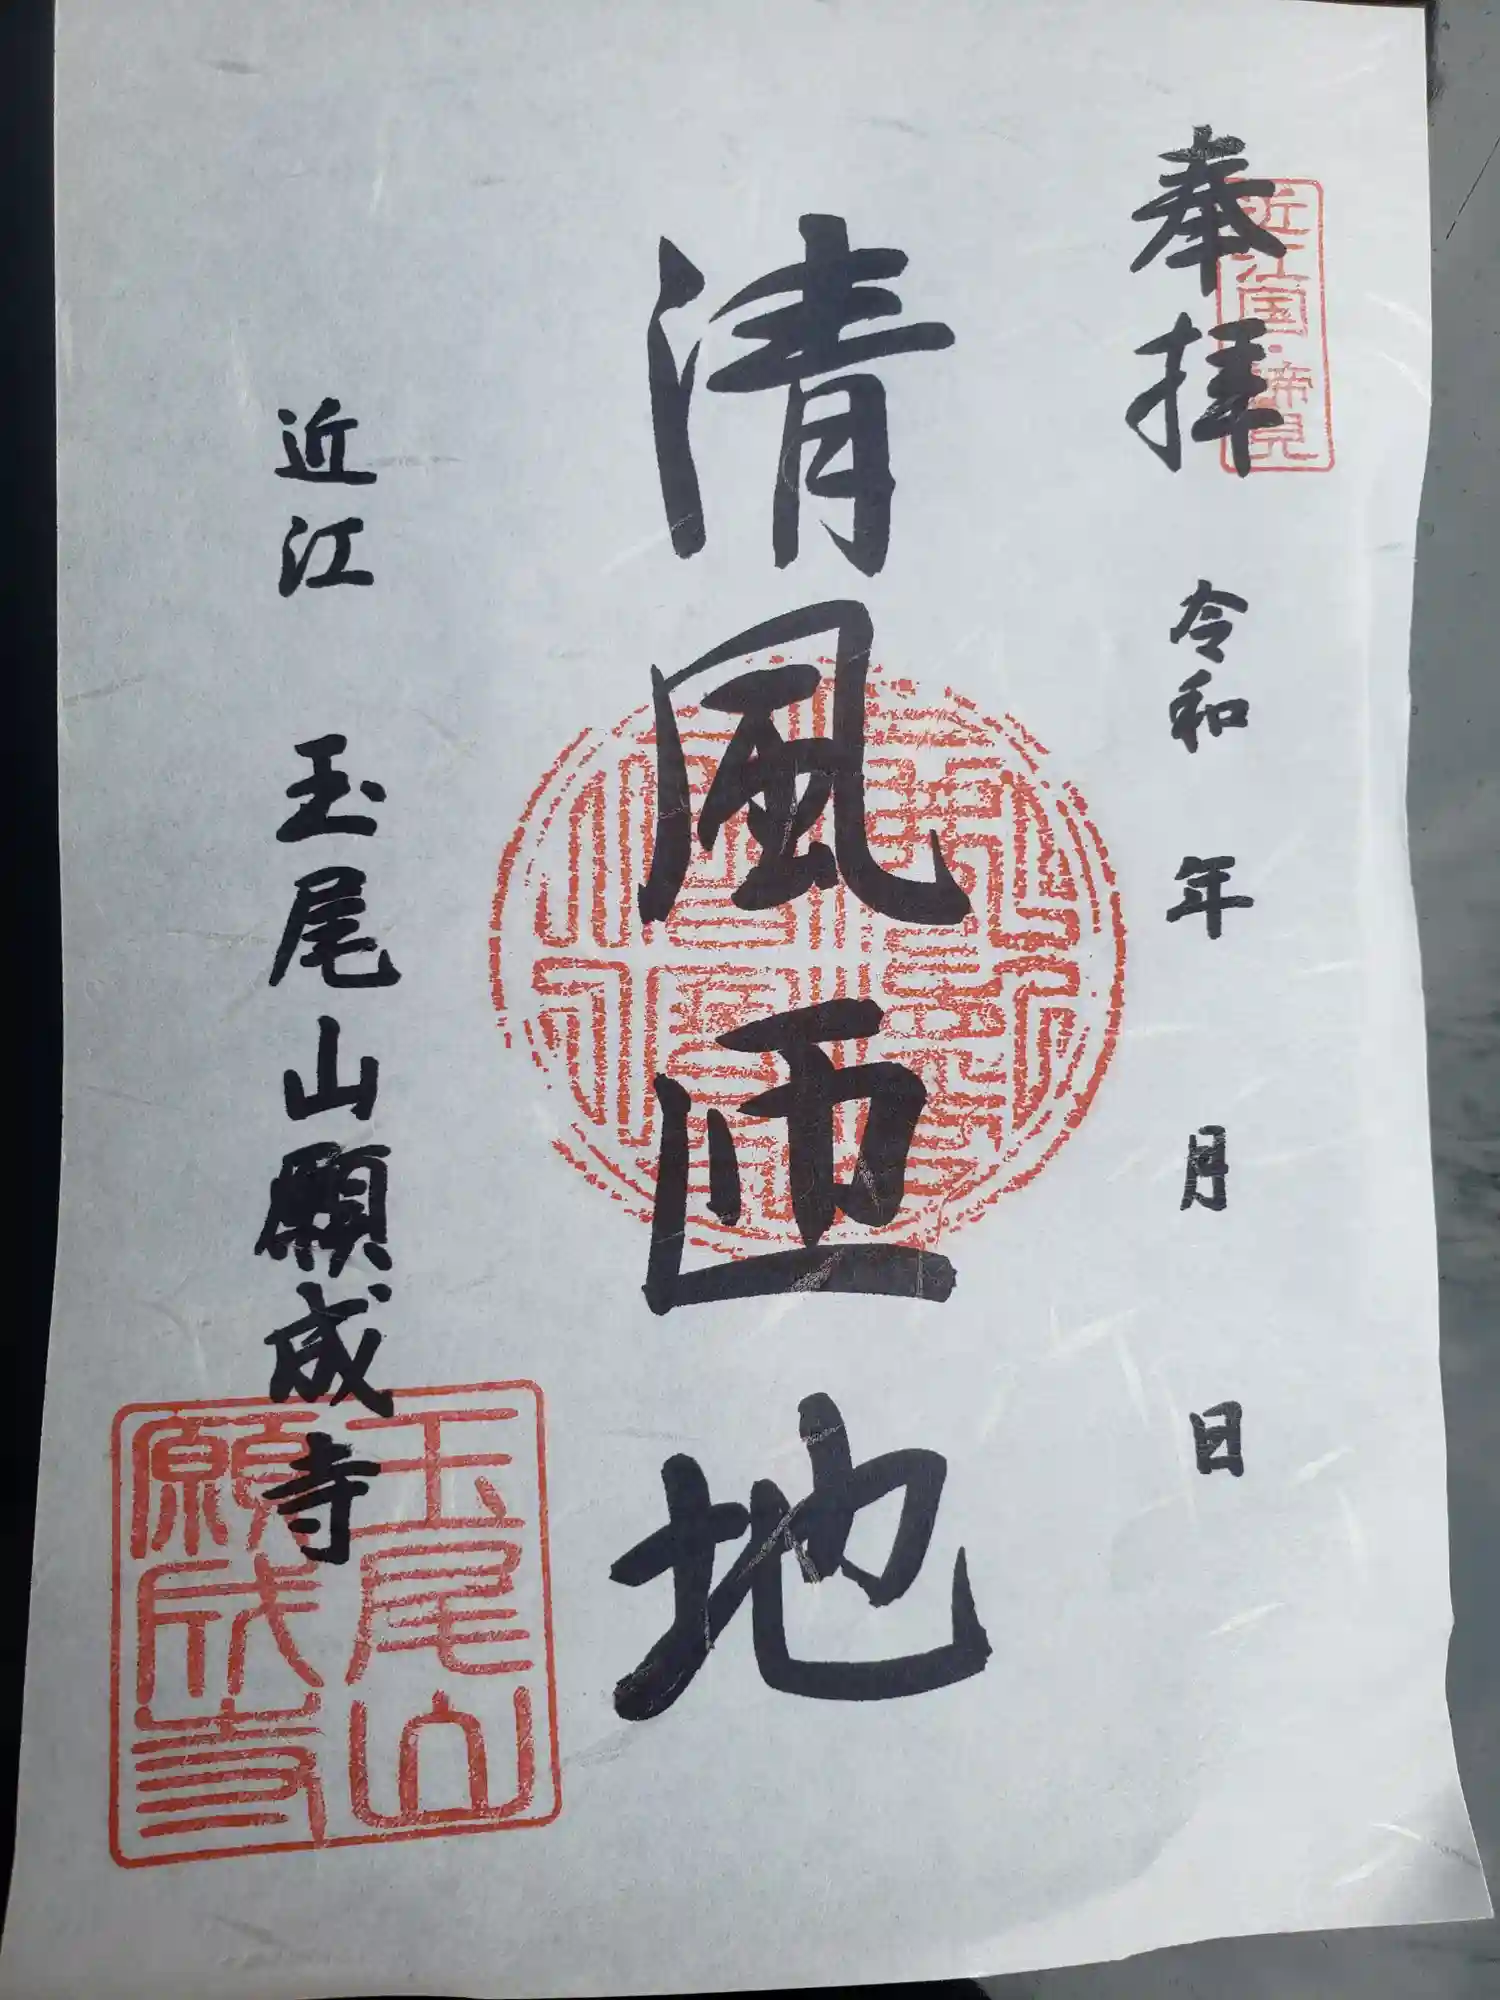 奉拝
令和 年 月 日
清風匝地
近江 玉尾山願成寺
近江国・蒲兒
玉尾山
願成寺